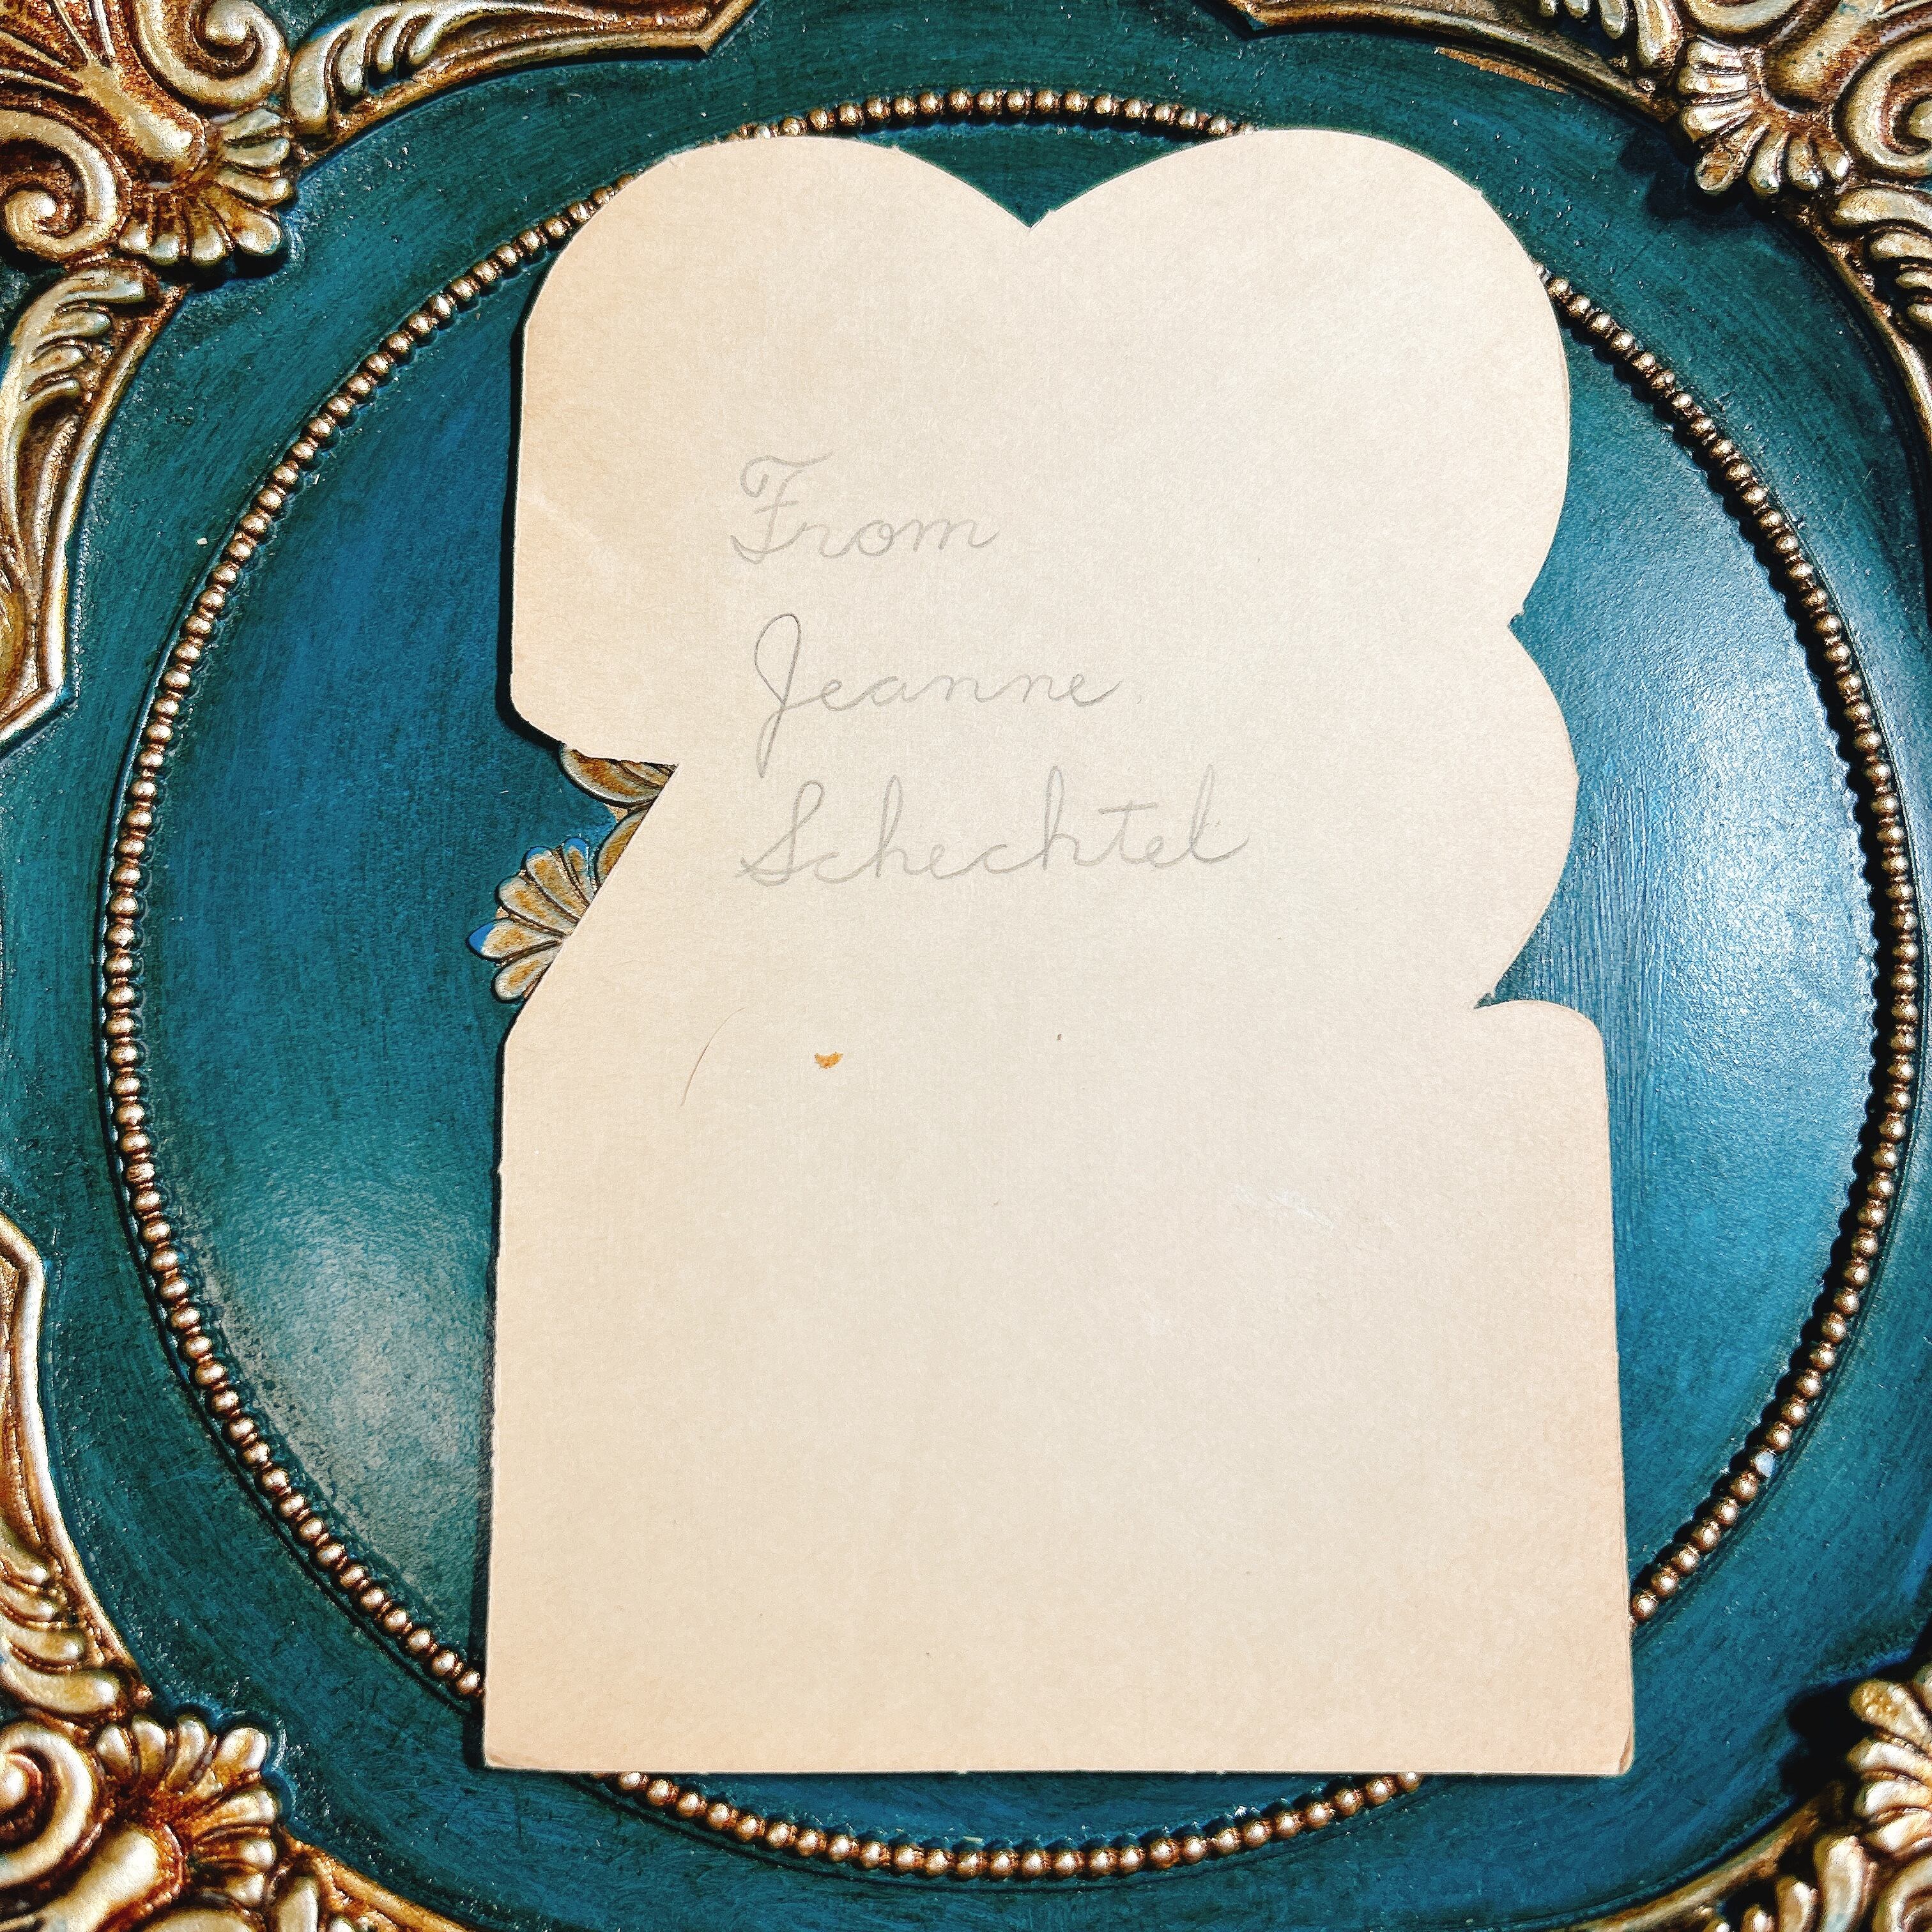 From
Jeanne
Schechtel